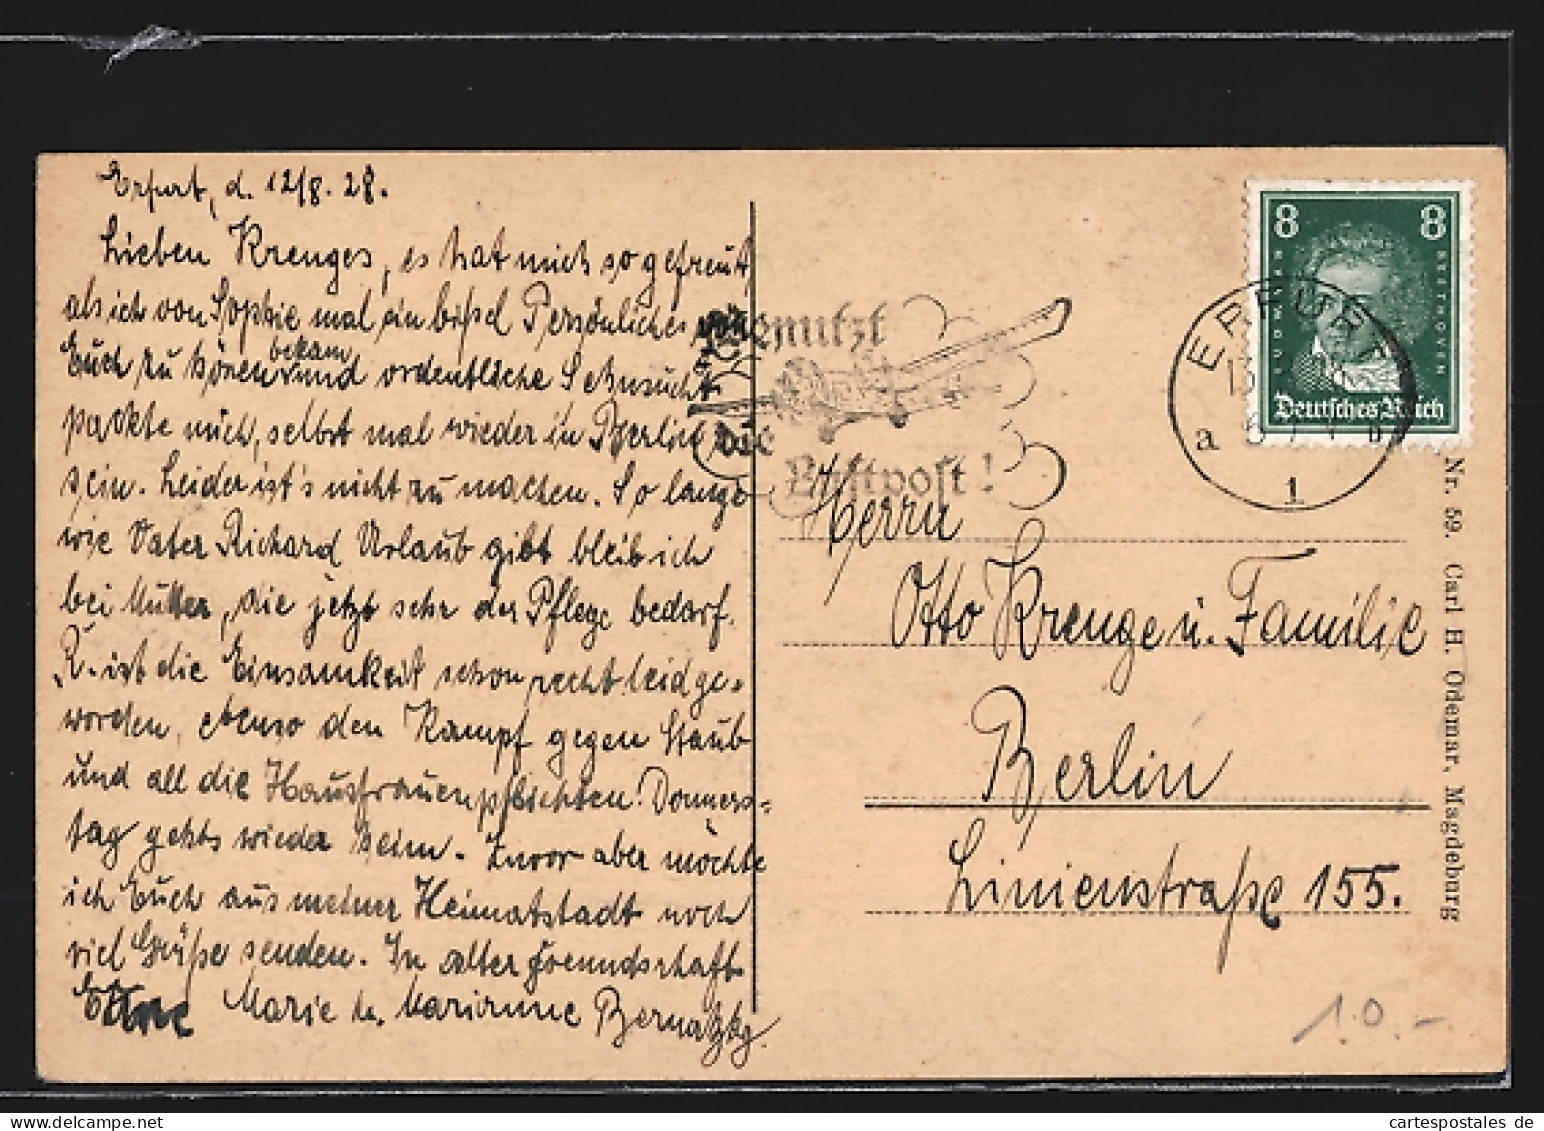 Erfurt, d. 12/8. 28.
Lieben Krenges, es hat mich so gefreut
als ich von Sophie mal ein bißel Persönliches von
Euch zu hören bekam und ordentliche Sehnsucht
packte mich, selbst mal wieder in Berlin zu
sein. Leider ist's nicht zu machen. So lange
wie Vater Richard Urlaub gibt bleib ich
bei Mutter, die jetzt sehr der Pflege bedarf.
R. ist die Einsamkeit schon recht leid ge-
worden, ebenso den Kampf gegen Staub
und all die Hausfrauenpflichten! Donners-
tag gehts wieder heim. Zuvor aber möchte
ich Euch aus meiner Heimatstadt noch
viel Grüße senden. In alter Freundschaft
Eure Marie u. Marianne Bernatzky.
Benutzt
die
Luftpost!
8 8
LUDWIG VAN BEETHOVEN
Deutsches Reich
ERFURT
a
1
Herrn
Otto Krenge u. Familie
Berlin
Linienstraße 155.
Nr. 59. Carl H. Odemar, Magdeburg
10.-
cartespostales.de